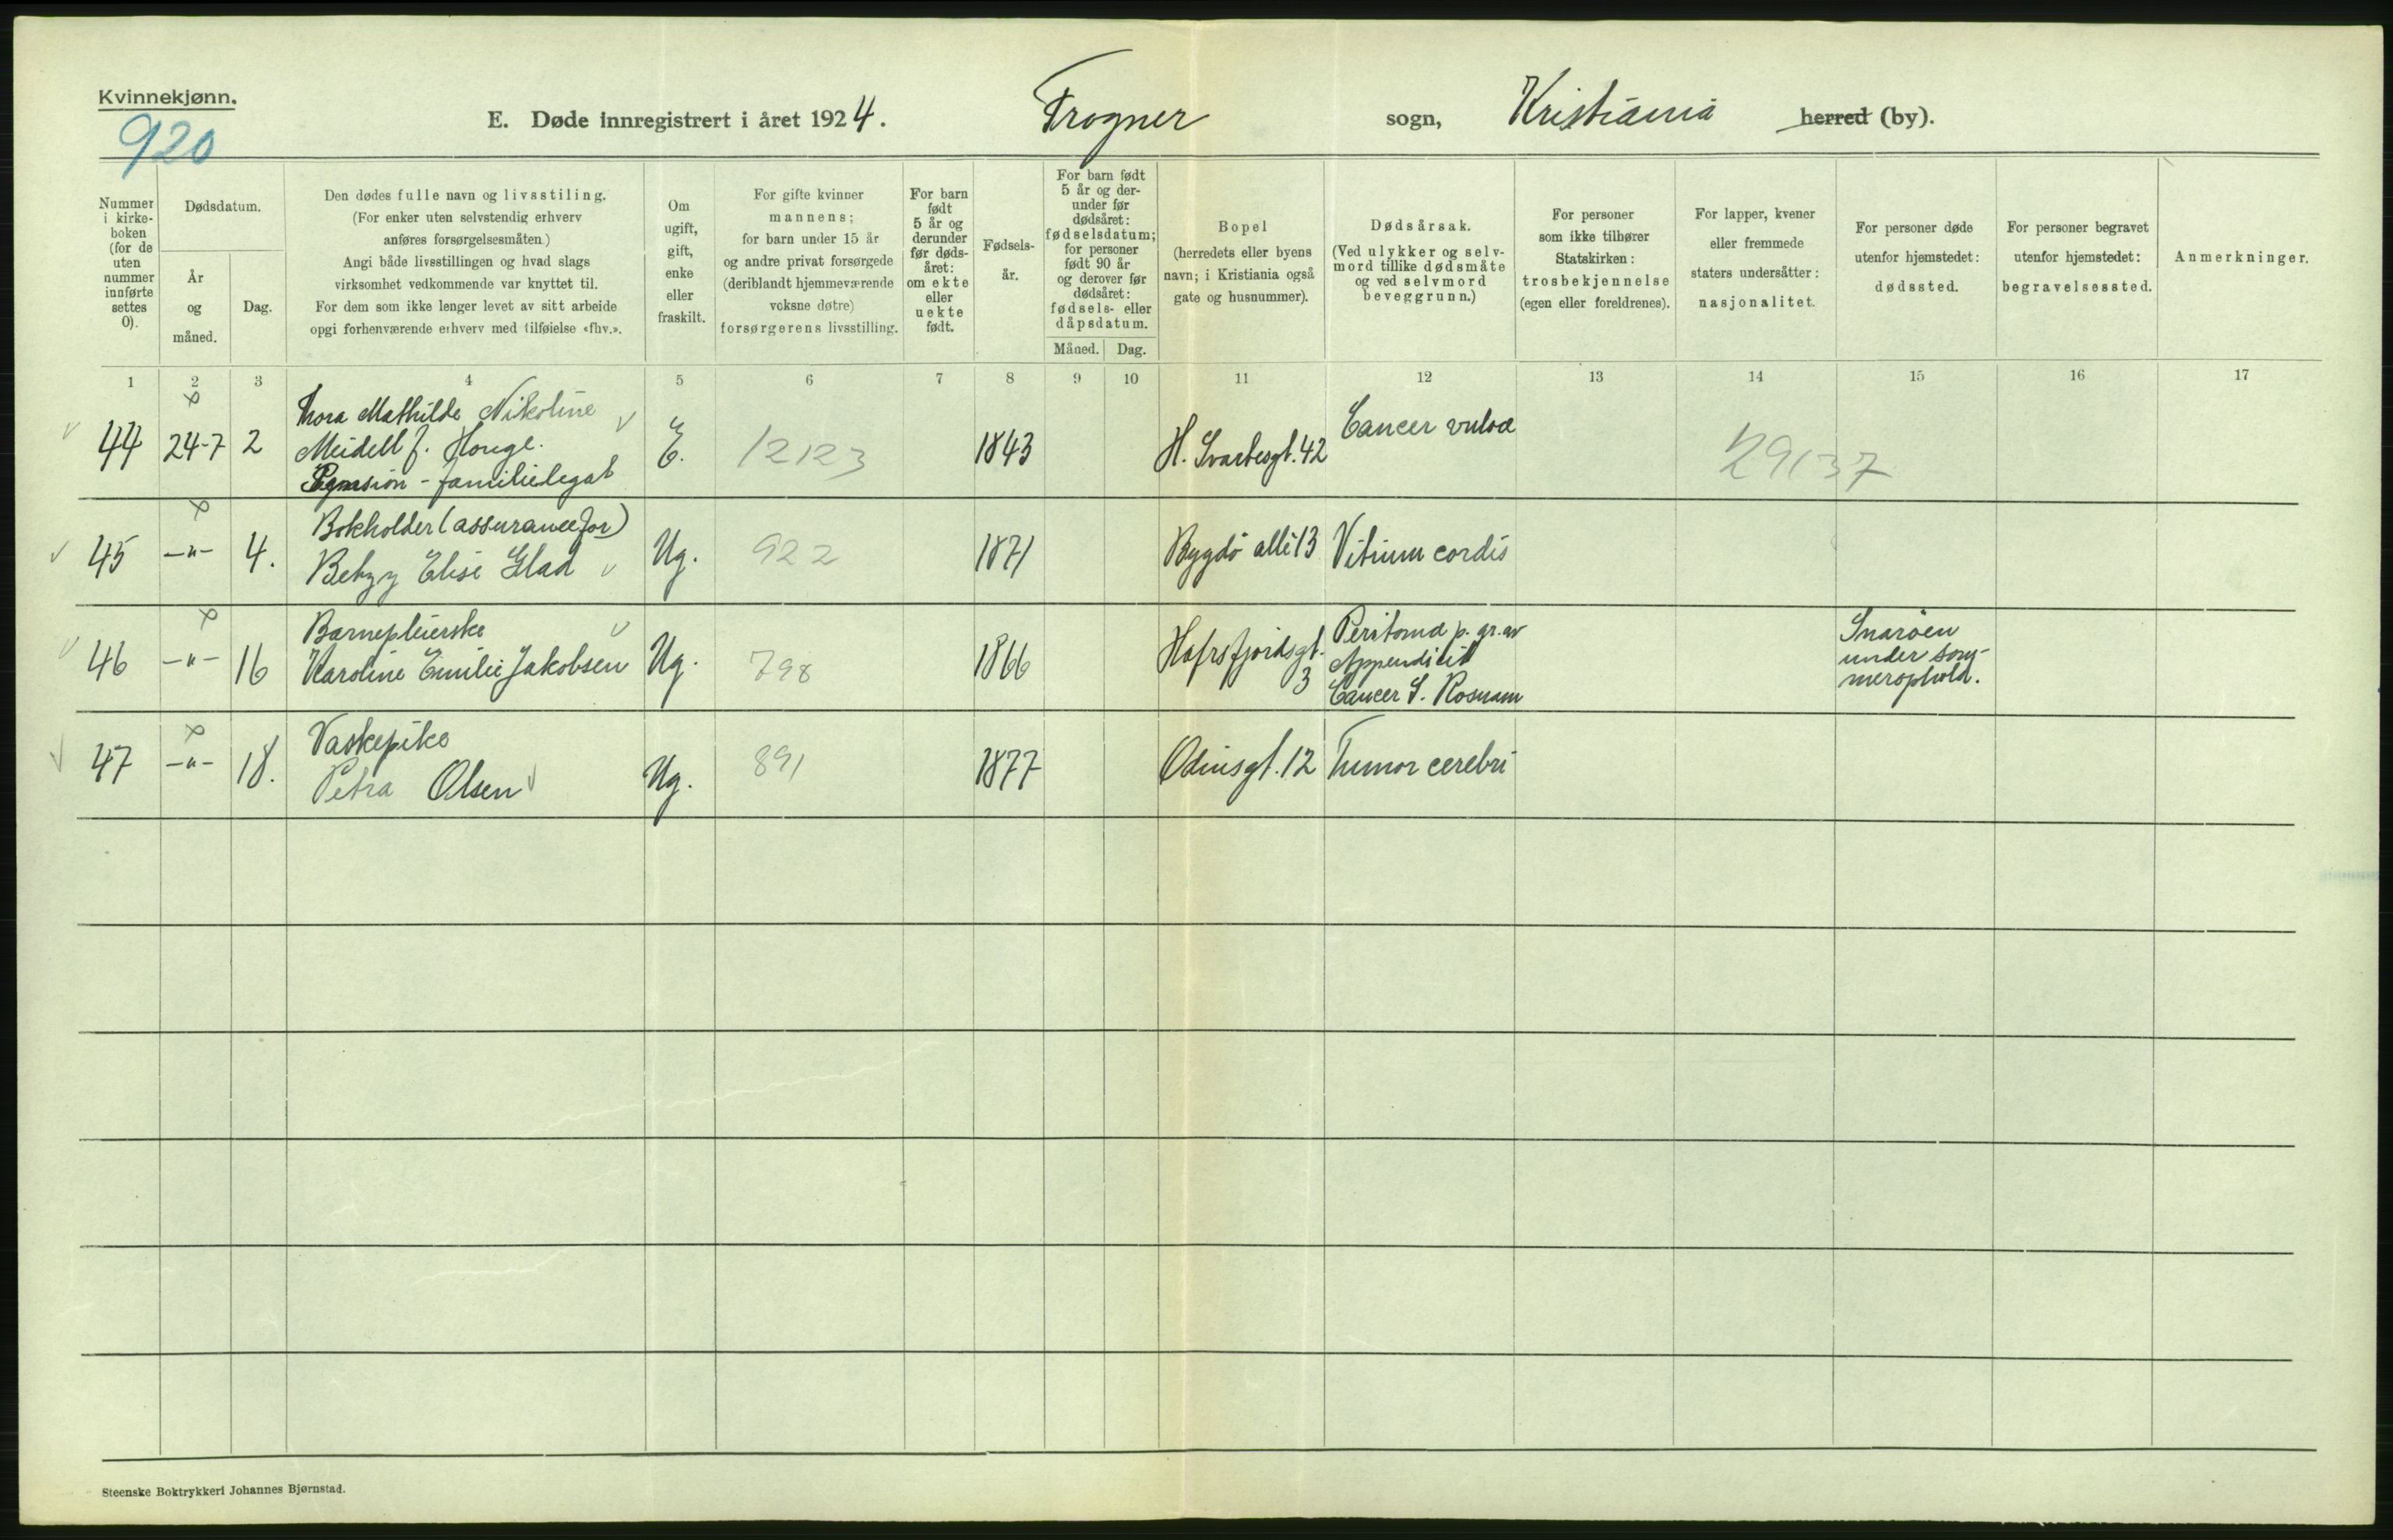 Kvinnekjønn.
920
E. Døde innregistrert i året 1924. Frogner sogn, Kristiania herred (by).
Nummer i kirke- boken (for de uten nummer innførte settes 0).
Dødsdatum.
År og måned.
Dag.
Den dødes fulle navn og livsstiling.
(For enker uten selvstendig erhverv
anføres forsørgelsesmåten)
Angi både livsstillingen og hvad slags
virksomhet vedkommende var knyttet til.
For dem som ikke lenger levet av sitt arbeide
opgi forhenværende erhverv med tilføielse «fhv.».
Om ugift, gift, enke eller fraskilt.
For gifte kvinner
mannens;
for barn under 15 år
og andre privat forsørgede
(deriblandt hjemmeværende
voksne døtre)
forsørgerens livsstilling.
For barn født 5 år og derunder før døds- året: om ekte eller uekte født.
Fødsels- år.
For barn født
5 år og der-
under før
dødsåret:
fødselsdatum;
for personer
født 90 år
og derover før
dødsåret:
fødsels- eller
dåpsdatum.
Måned. Dag.
Bopel
(herredets eller byens
navn; i Kristiania også
gate og husnummer).
Dødsårsak.
(Ved ulykker og selv-
mord tillike dødsmåte
og ved selvmord
beveggrunn.)
For personer
som ikke tilhører
Statskirken:
trosbekjennelse
(egen eller foreldrenes).
For lapper, kvener
eller fremmede
staters undersåtter:
nasjonalitet.
For personer døde
utenfor hjemstedet:
dødssted.
For personer begravet
utenfor hjemstedet:
begravelsessted.
Anmerkninger.
1 2 3 4 5 6 7 8 9 10 11 12 13 14 15 16 17
Thora Mathilde Nikoline
44 24-7 2 Meidell f. Hougl. E. 12123 1843 H. Svartesgt. 42 Cancer vulva 29137
Pension - familielegat
Bokholder (assurancefor)
45 -"- 4. Betzy Elise Glad Ug. 922 1871 Bygdö allé 13 Vitium cordis
Barnepleierske
46 -"- 16 Karoline Emilie Jakobsen Ug. 798 1866 Hafrsfjordsgt. 3
Peritomd p. gr. av
Appendicit
Cancer S. Rosnam
Snaröen
under som-
merophold.
Vaskepike
47 -"- 18. Petra Olsen Ug. 891 1877 Odinsgt. 12 Tumor cerebri
Steenske Boktrykkeri Johannes Bjørnstad.